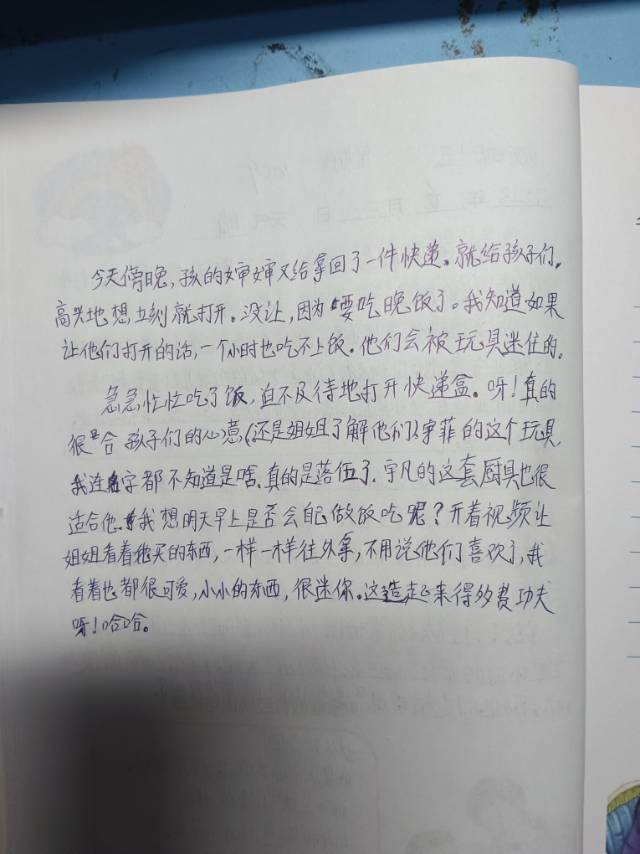 今天傍晚，孩的婶婶又给拿回了一件快递。就给孩子们。
高兴地想立刻就打开。没让，因为要吃晚饭了。我知道如果
让他们打开的话，一个小时也吃不上饭。他们会被玩具迷住的。
急急忙忙吃了饭，迫不及待地打开快递盒。呀！真的
很合孩子们的心意（还是姐姐了解他们）宇菲的这个玩具
我连名字都不知道是啥，真的是落伍了。宇凡的这套厨具也很
适合他。我想明天早上是否会自己做饭吃呢？开着视频让
姐姐看着她买的东西，一样一样往外拿，不用说他们喜欢了，我
看着也都很可爱，小小的东西，很迷你。这造起来得多费功夫
呀！哈哈。